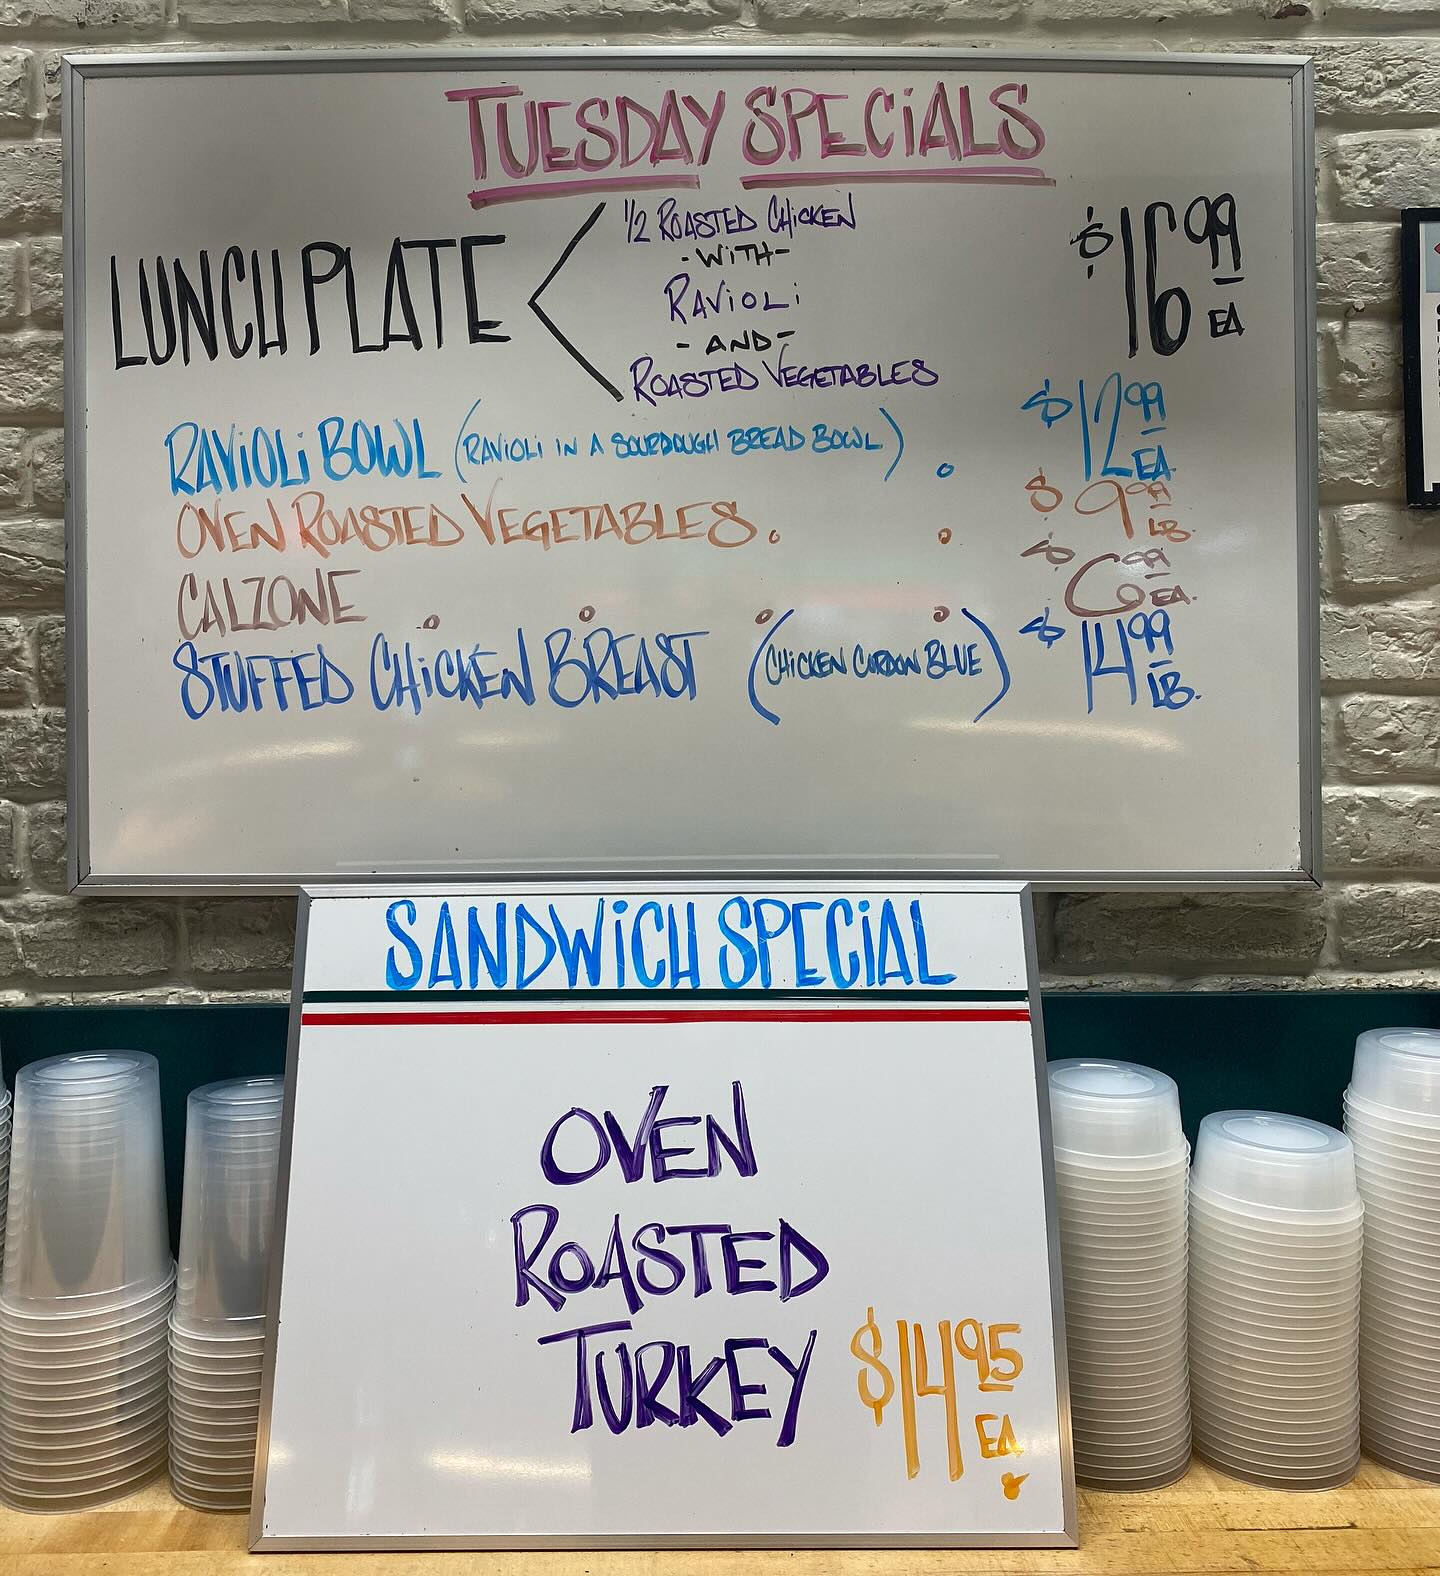 TUESDAY SPECiALS
LUNCH PLATE
1/2 ROASTED CHiCKEN
- WiTH -
RAViOLi
- AND -
ROASTED VEGETABLES
$16.99 EA
RAViOLi BOWL (RAViOLi IN A SOURDOUGH BREAD BOWL) . $12.99 EA.
OVEN ROASTED VEGETABLES . . $9.99 LB.
CALZONE . . . . $6.99 EA.
STUFFED CHiCKEN BREAST (CHiCKEN CORDON BLUE) $14.99 LB.
SANDWiCH SPECiAL
OVEN
ROASTED
TURKEY
$14.95 EA.